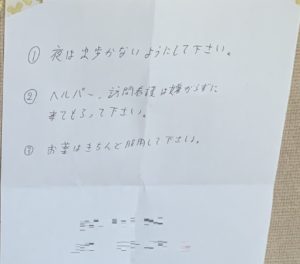 ① 夜は出歩かないようにして下さい。
② ヘルパー、訪問看護は嫌がらずに
来てもらって下さい。
③ お薬はきちんと服用して下さい。